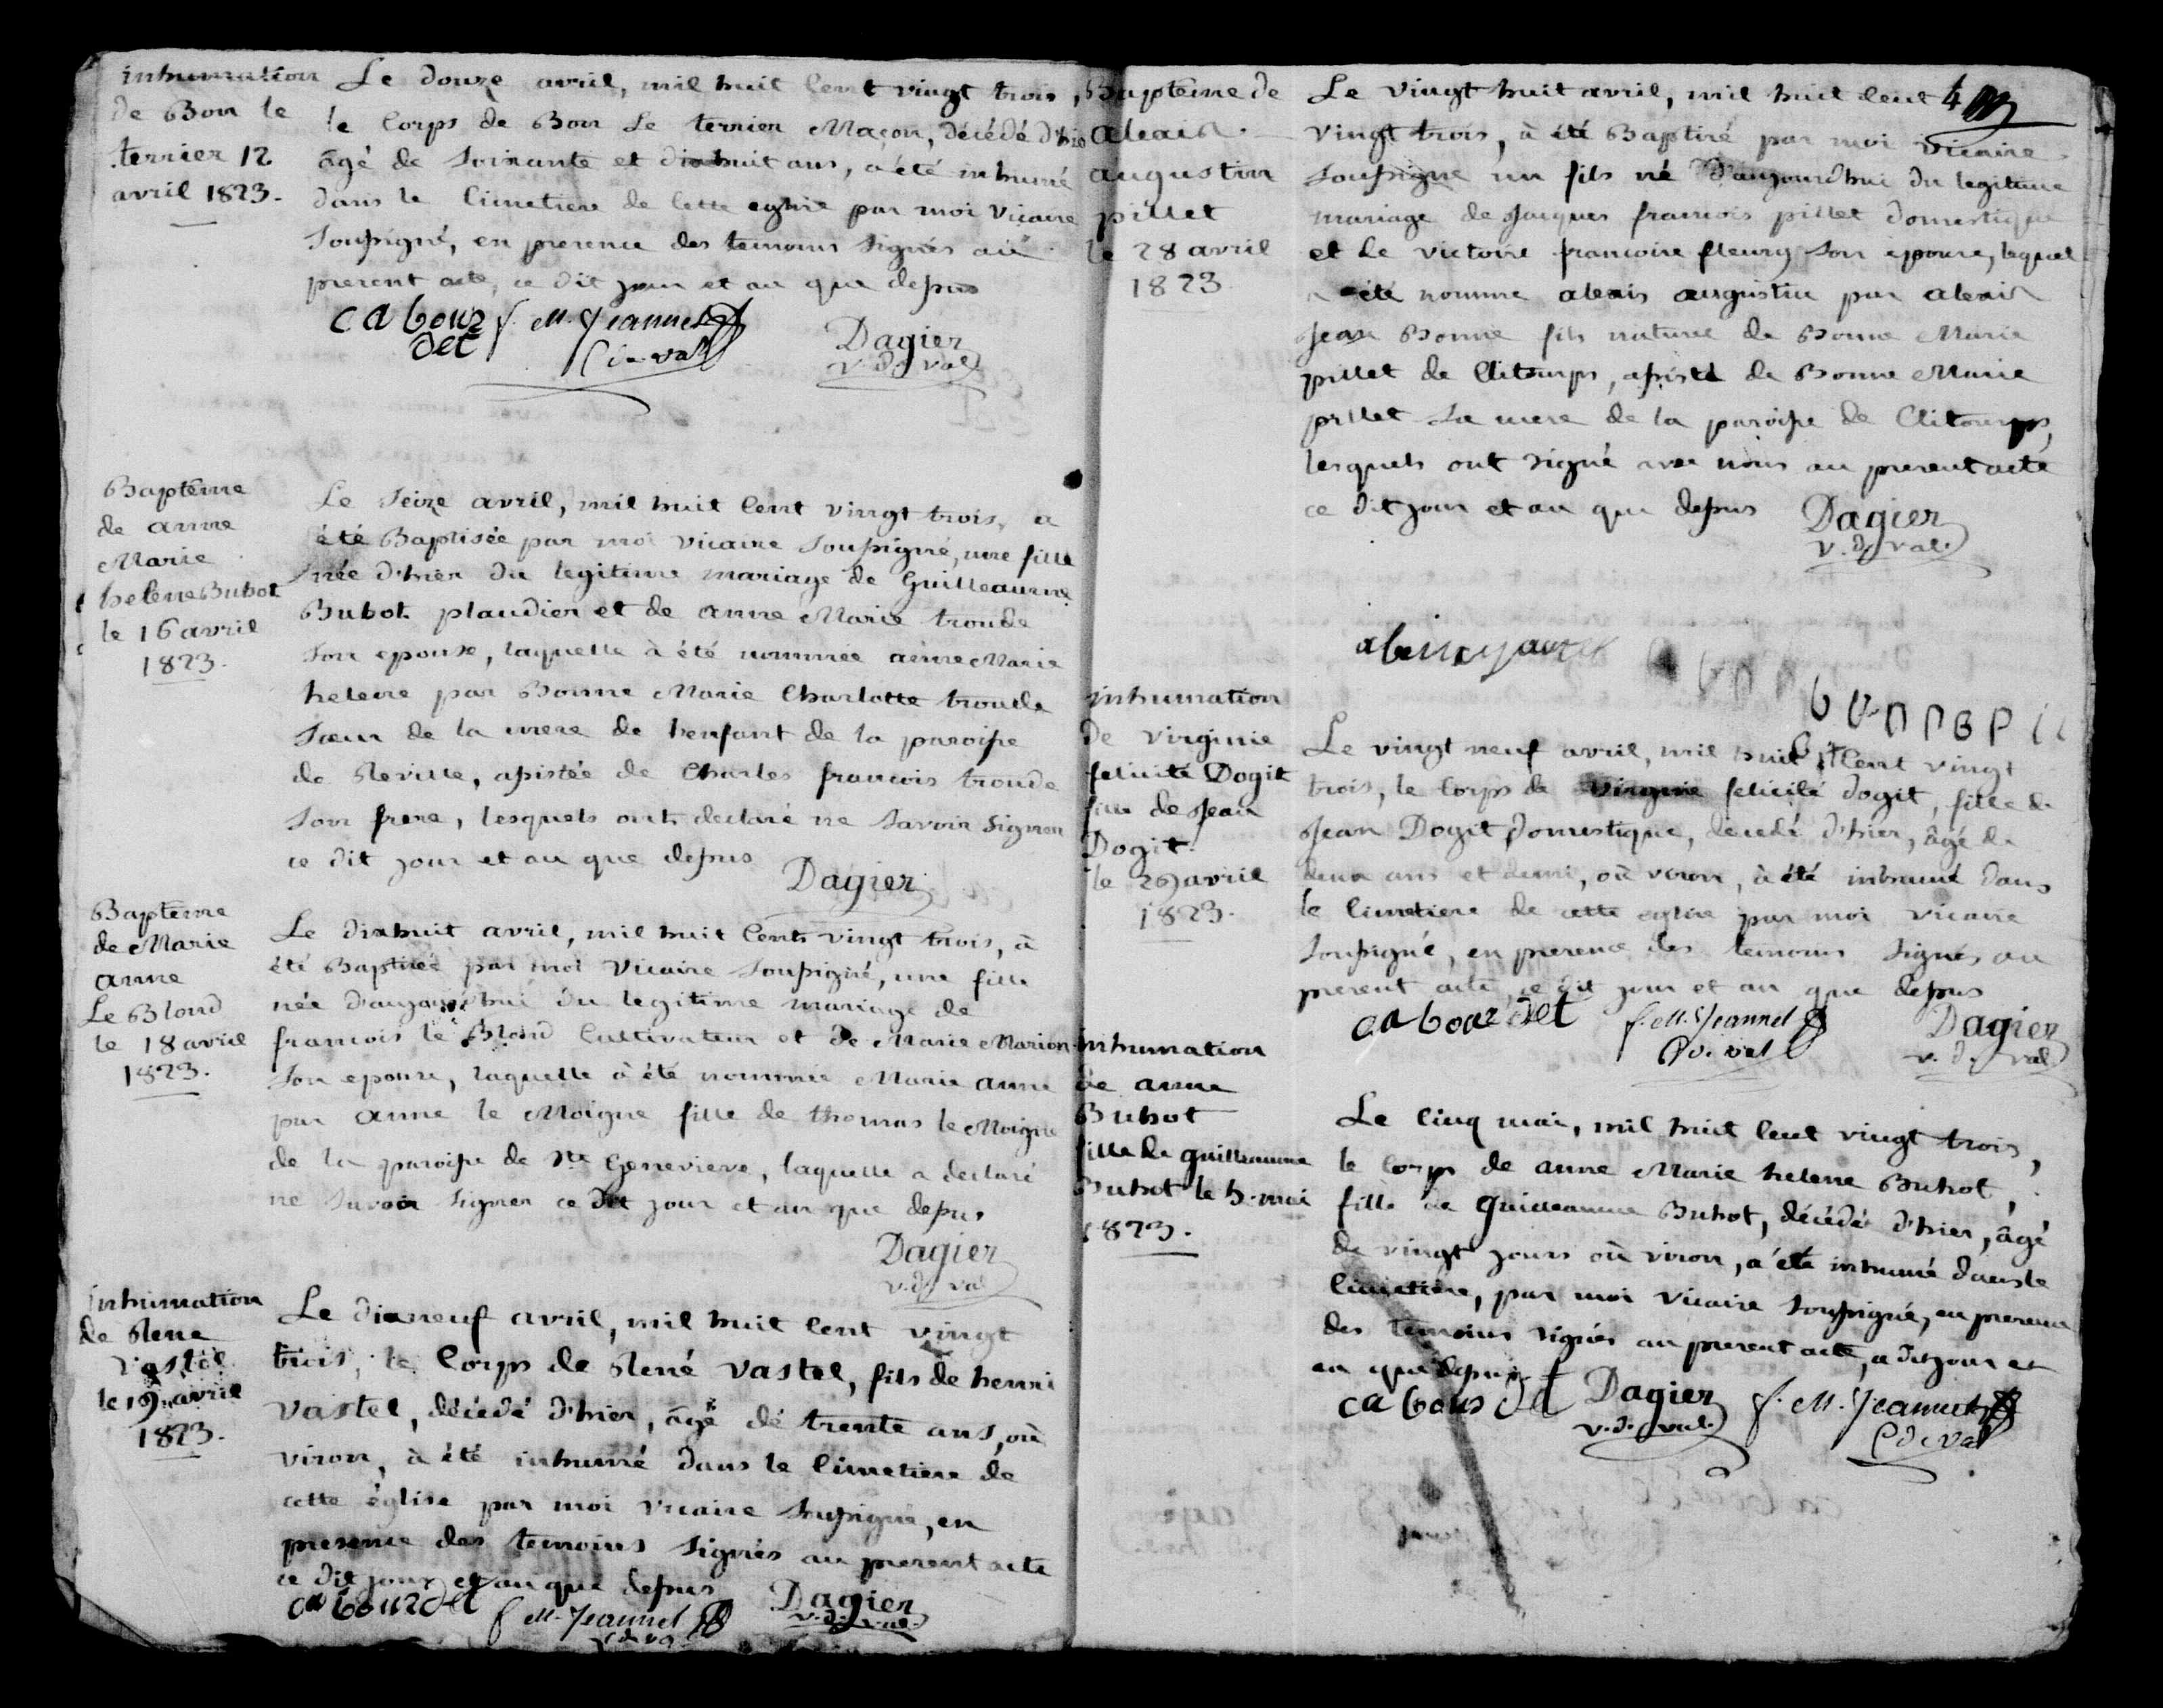 inhumation
de Bon le
terrier 12
avril 1823.
Le douze avril, mil huit Cent vingt trois,
le Corps de Bon Le terrier Maçon, décédé d'hier
âgé de soixante et dixhuit ans, a été inhumé
dans le Cimetiere de Cette eglise par moi Vicaire
soussigné, en presence des temoins signés au
present acte, ce dit jour et an que dessus
cabour f. M. Jeannel
det
Dagier
v. d. val
Baptême
de anne
Marie
helene Buhot
le 16 avril
1823.
Le seize avril, mil huit Cent vingt trois, a
été Baptisée par moi Vicaire soussigné, une fille
née d'hier du legitime mariage de Guilleaume
Buhot plaudier et de anne Marie troude
son epouse, laquelle à été nommée anne Marie
helene par Bonne Marie Charlotte troude
sœur de la mere de lenfant de la paroisse
de Reville, assistée de Charles francois troude
son frere, lesquels ont declaré ne savoir signer
ce dit jour et an que dessus
Dagier
Bapteme
de Marie
anne
Le Blond
le 18 avril
1823.
Le dixhuit avril, mil huit Cent vingt trois, à
été Baptisée par moi Vicaire soussigné, une fille
née d'aujourd'hui du legitime mariage de
francois le Blond Cultivateur et de Marie Marion
son epouse, laquelle à été nommée Marie anne
par anne le Moigne fille de thomas le Moigne
de la paroisse de Ste Genevieve, laquelle a declaré
ne savoir signer ce dit jour et an que dessus
Dagier
v. d. val
inhumation
de Rene
Vastel
le 19 avril
1823.
Le dixneuf avril, mil huit Cent vingt
trois, le Corps de René Vastel, fils de henri
Vastel, décédé d'hier, âgé de trente ans, où
viron, à été inhumé dans le Cimetiere de
cette église par moi Vicaire soussigné, en
presence des temoins signés au present acte
ce dit jour et an que dessus
cabourdet f. M. Jeannel Dagier
v. d. val.
Bapteme de
alexis
augustin
pillet
le 28 avril
1823
Le vingt huit avril, mil huit Cent 4
vingt trois, à été Baptisé par moi Vicaire
soussigné un fils né d'aujourdhui du legitime
mariage de Jacques francois pillet domestique
et de victoire francoise fleury son epouse, lequel
a été nommé alexis augustin par alexis
Jean Bonne fils naturel de Bonne Marie
pillet de Clitourps, assisté de Bonne Marie
pillet sa mere de la paroisse de Clitourps,
lesquels ont signé avec nous au present acte
ce dit jour et an que dessus Dagier
v. d. val.
inhumation
de virginie
felicité Dogit
fille de Jean
Dogit
le 29 avril
1823.
Le vingt neuf avril, mil huit Cent vingt
trois, le Corps de Virginie felicité dogit, fille de
Jean Dogit, domestique, décédé d'hier, âgé de
deux ans et demi, où viron, à été inhumé dans
le Cimetiere de cette eglise par moi Vicaire
soussigné, en presence des temoins signés au
present acte, ce dit jour et an que dessus
cabourdet f. M. Jeannel Dagier
C. de val v. d. val
inhumation
de anne
Buhot
fille de guilleaume
Buhot le 5 mai
1823.
Le Cinq mai, mil huit Cent vingt trois,
le Corps de anne Marie helene Buhot,
fille de guilleaume Buhot, décédé d'hier, âgé
de vingt jours où viron, à été inhumé dans le
Cimetiére, par moi Vicaire soussigné, en presence
des temoins signés au present acte, ce dit jour et
an que dessus
cabourdet Dagier f. M. Jeannel
v. d. val. C. de val